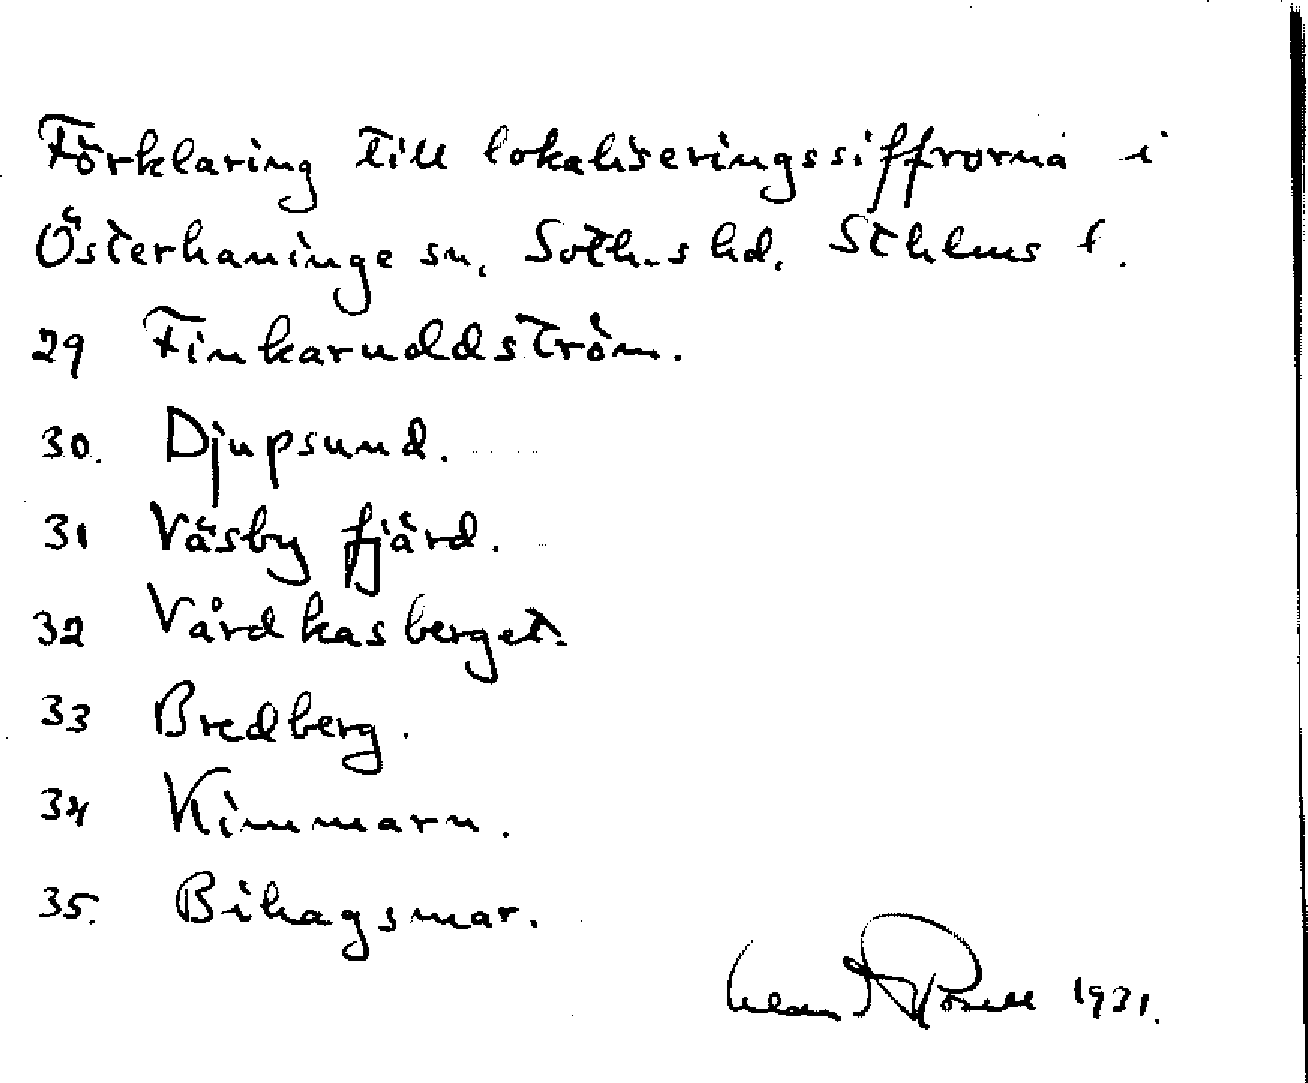 Förklaring till lokaliseringssiffrorna i
Österhaninge sn. Soth.s hd. Sthlms l.
29 Finkaruddström.
30. Djupsund.
31 Väsby fjärd.
32 Vårdkasberget.
33 Bredberg.
34 Kimmarn.
35. Bihagsmar.
1931.